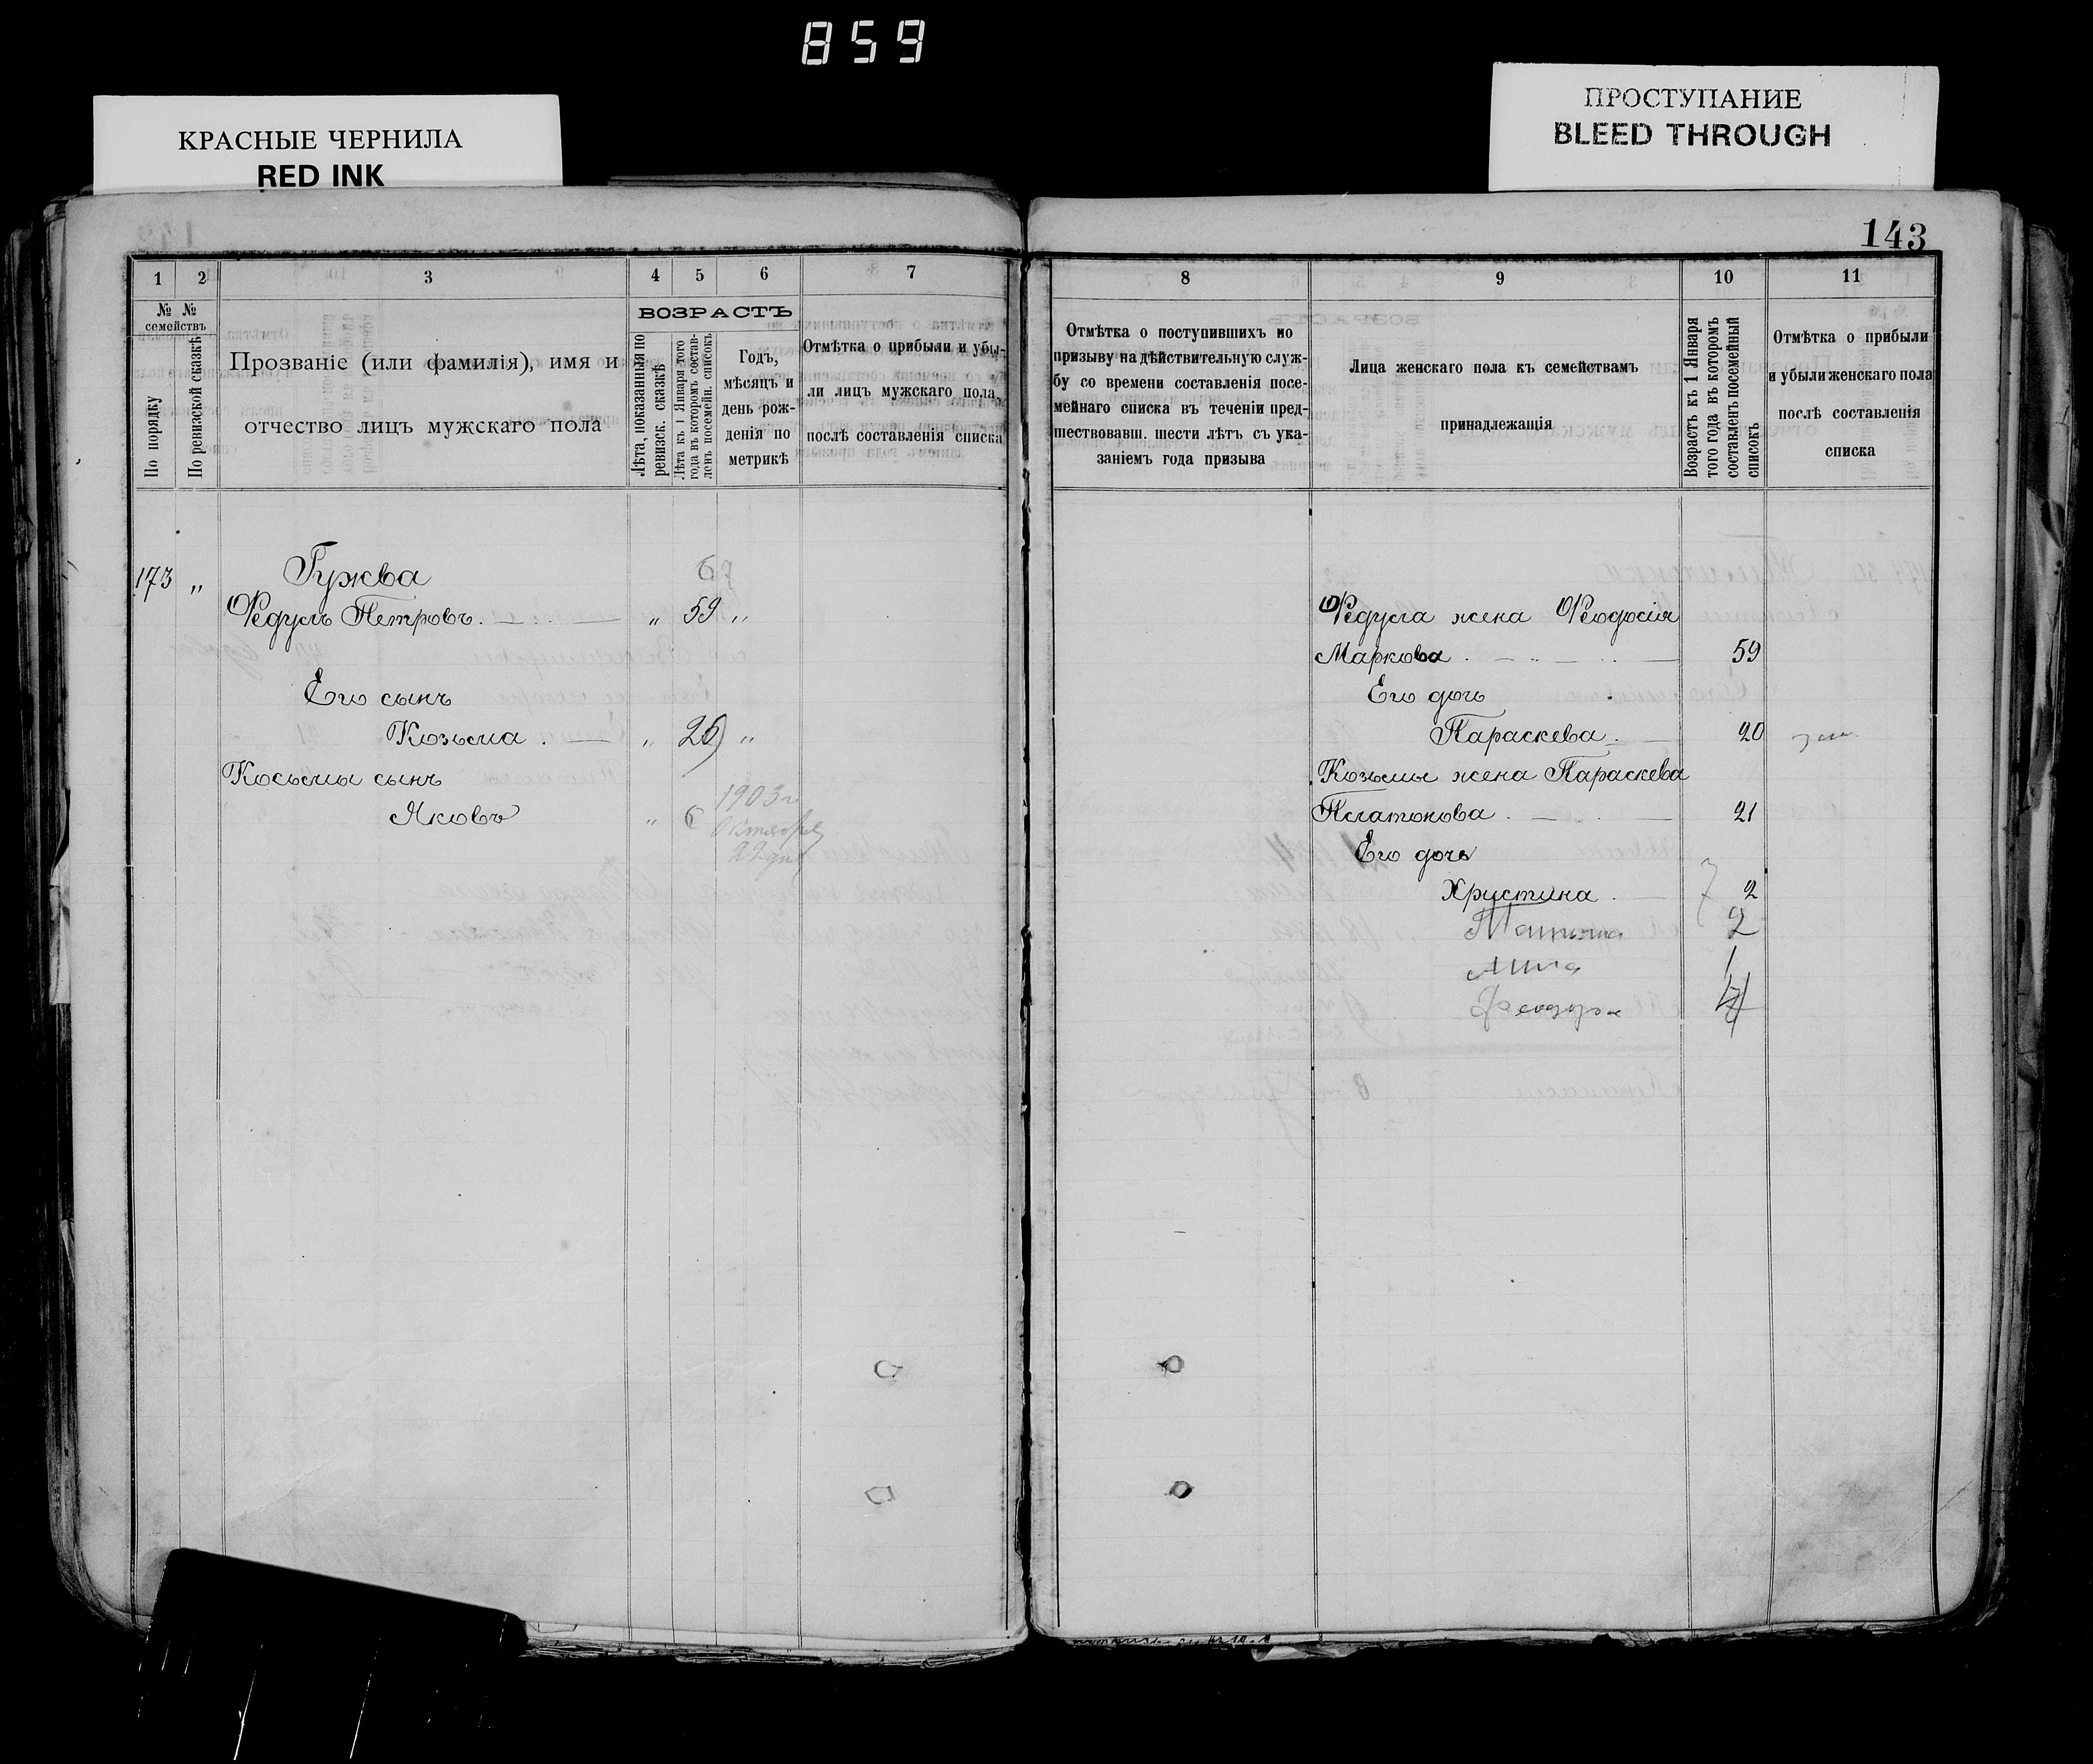 859
КРАСНЫЕ ЧЕРНИЛА
RED INK
ПРОСТУПАНИЕ
BLEED THROUGH
143
1 2 3 4 5 6 7
№ № семействъ
По порядку
По ревизской сказкѣ
Прозваніе (или фамилія), имя и
отчество лицъ мужскаго пола
ВОЗРАСТЪ
Лѣта, показанныя по
ревизск. сказкѣ
Лѣта къ 1 Января того
года въ которомъ состав-
ленъ посемейн. списокъ
Годъ,
мѣсяцъ и
день рож-
денія по
метрикѣ
Отмѣтка о прибыли и убы-
ли лицъ мужскаго пола,
послѣ составленія списка
8 9 10 11
Отмѣтка о поступившихъ по
призыву на дѣйствительную служ-
бу со времени составленія посе-
мейнаго списка въ теченіи пред-
шествовавш. шести лѣтъ съ ука-
заніемъ года призыва
Лица женскаго пола къ семействамъ
принадлежащія
Возрастъ къ 1 Января
того года въ которомъ
составленъ посемейный
списокъ
Отмѣтка о прибыли
и убыли женскаго пола
послѣ составленія
списка
173 „ Гужва 67
Ѳедулъ Петровъ. „ 59 „
Его сынъ
Козьма . „ 26 „
Косьмы сынъ
Яковъ „ 6 1903 г.
Октября
22 дня
Ѳедула жена Ѳеодосія
Маркова . 59
Его дочь
Параскева . 20 зам.
Козьмы жена Параскева
Платонова . 21
Его дочь
Христина . 7 2
Татьяна 2
Анна 1
Феодора 4